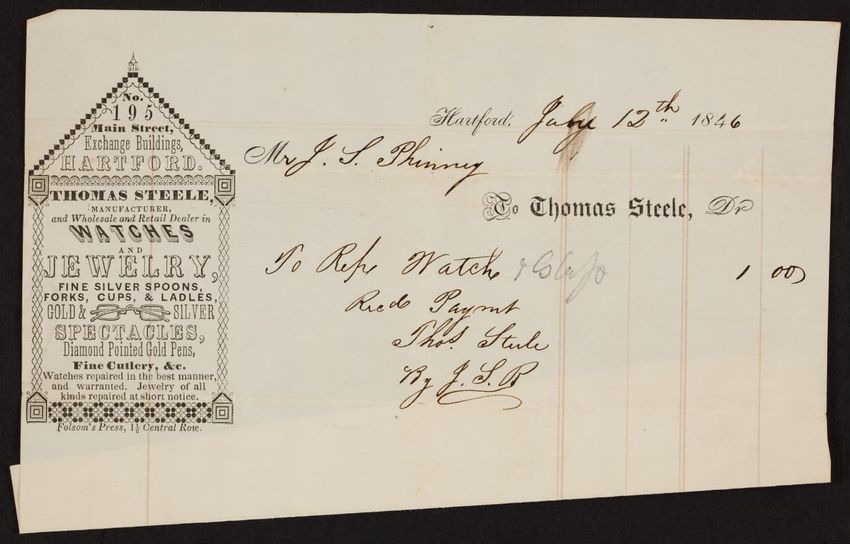 No.
195
Main Street,
Exchange Buildings,
HARTFORD.
THOMAS STEELE,
MANUFACTURER,
and Wholesale and Retail Dealer in
WATCHES
AND
JEWELRY,
FINE SILVER SPOONS,
FORKS, CUPS, & LADLES,
GOLD & SILVER
SPECTACLES,
Diamond Pointed Gold Pens,
Fine Cutlery, &c.
Watches repaired in the best manner,
and warranted. Jewelry of all
kinds repaired at short notice.
Folsom's Press, 1½ Central Row.
Hartford, July 12th 1846
Mr J. S. Phinney
To Thomas Steele, Dr
To Repr Watch & Glass 1 00
Recd Paymt
Thos. Steele
By J. S. B